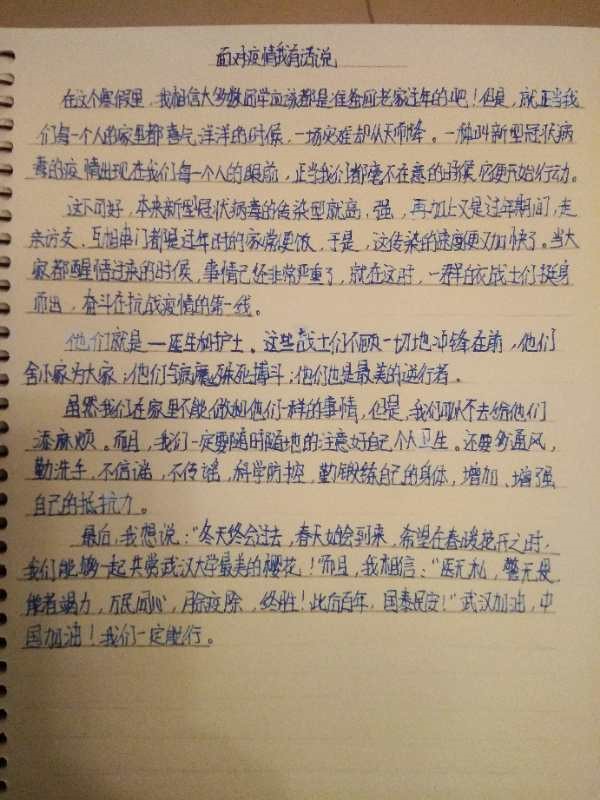 面对疫情我有话说
在这个寒假里，我相信大多数同学应该都是准备回老家过年的吧！但是，就正当我
们每一个人的家里都喜气洋洋的时候，一场灾难却从天而降。一种叫新型冠状病
毒的疫情出现在我们每一个人的眼前，正当我们都毫不在意的时候，它便开始行动。
这下可好，本来新型冠状病毒的传染型就高，强，再加上又是过年期间，走
亲访友，互相串门都是过年时的家常便饭，于是，这传染的速度更加快了。当大
家都醒悟过来的时候，事情已还非常严重了，就在这时，一群白衣战士们挺身
而出，奋斗在抗战疫情的第一线。
他们就是—医生和护士。这些战士们不顾一切地冲锋在前，他们
舍小家为大家；他们与病魔殊死搏斗；他们也是最美的逆行者。
虽然我们在家里不能做和他们一样的事情，但是，我们可以不去给他们
添麻烦。而且，我们一定要随时随地的注意好自己个人卫生。还要多通风，
勤洗手，不信谣，不传谣，科学防控，勤锻练自己的身体，增加、增强
自己的抵抗力。
最后，我想说：“冬天终会过去，春天始会到来，希望在春暖花开之时，
我们能够一起共赏武汉大学最美的樱花！”而且，我相信：“医无私，警无畏
能者竭力，万民同心，月余疫除，终胜！此后百年，国泰民安！”武汉加油，中
国加油！我们一定能行。